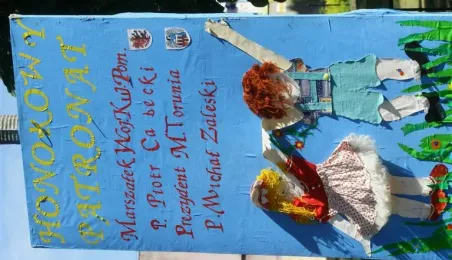 HONOROWY
PATRONAT
Marszałek Woj Kuj-Pom.
P. Piotr Ca becki
Prezydent M.Torunia
P. Michał Zaleski